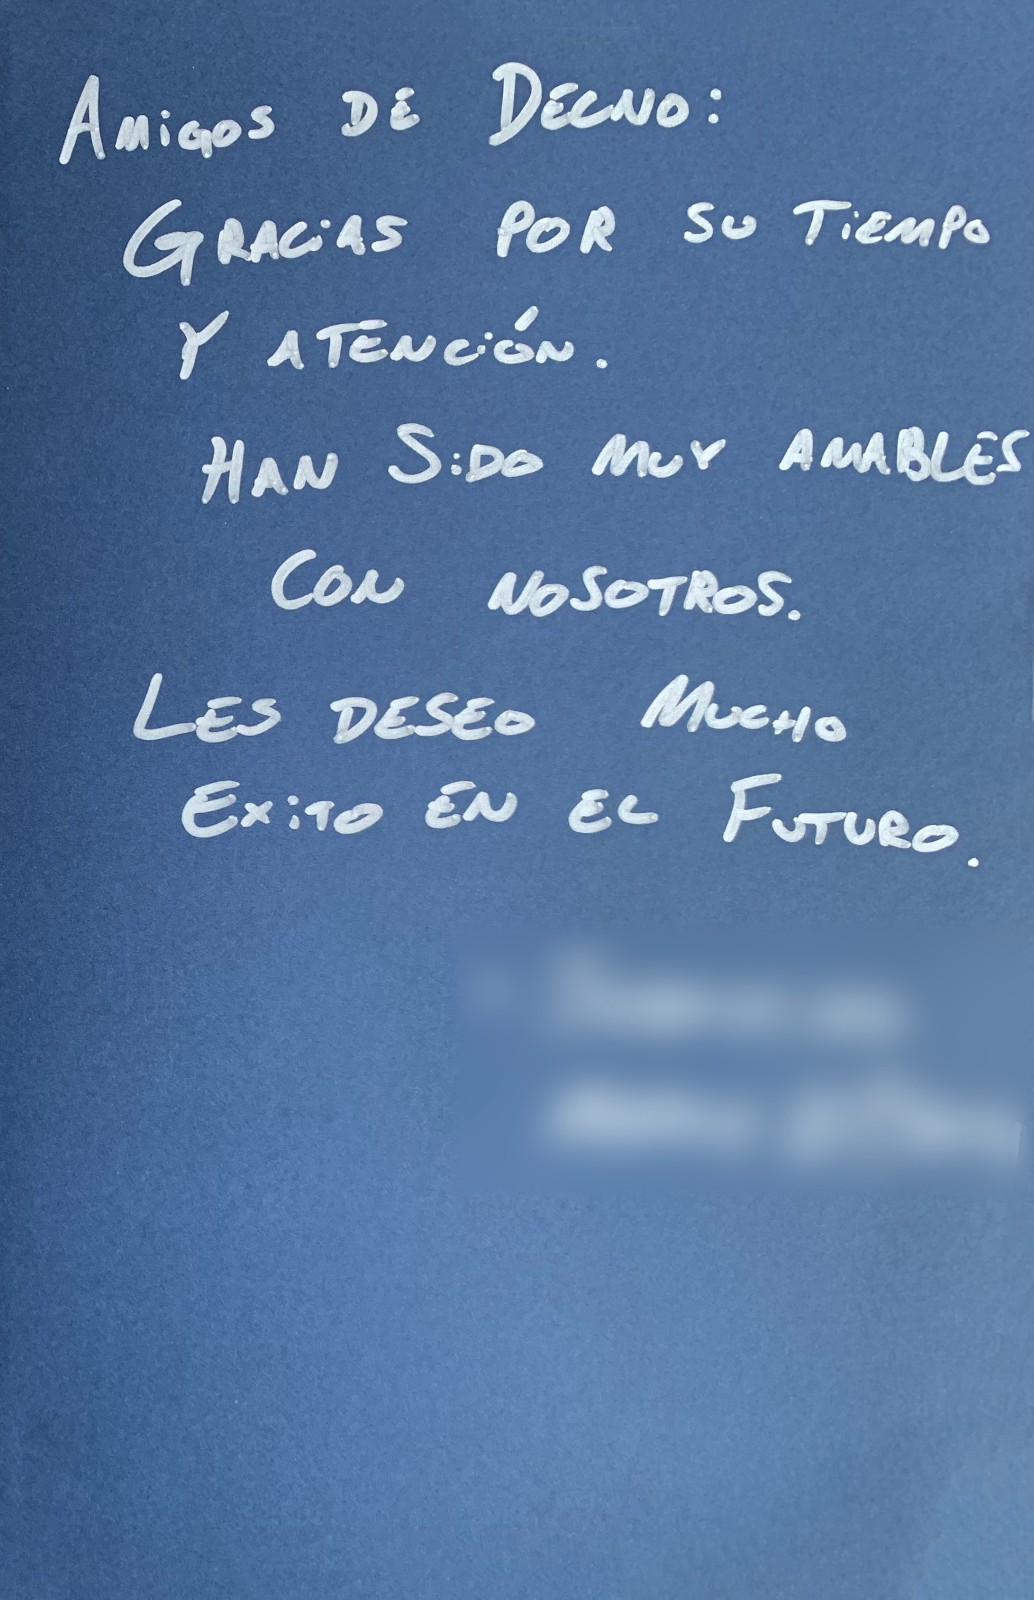 Amigos DE DECNO:
GRACiAS POR SU TiEMPO
Y ATENCiÓN.
HAN SiDO MUY AMABLES
CON NOSOTROS.
LES DESEO MUCHO
EXiTO EN EL FUTURO.